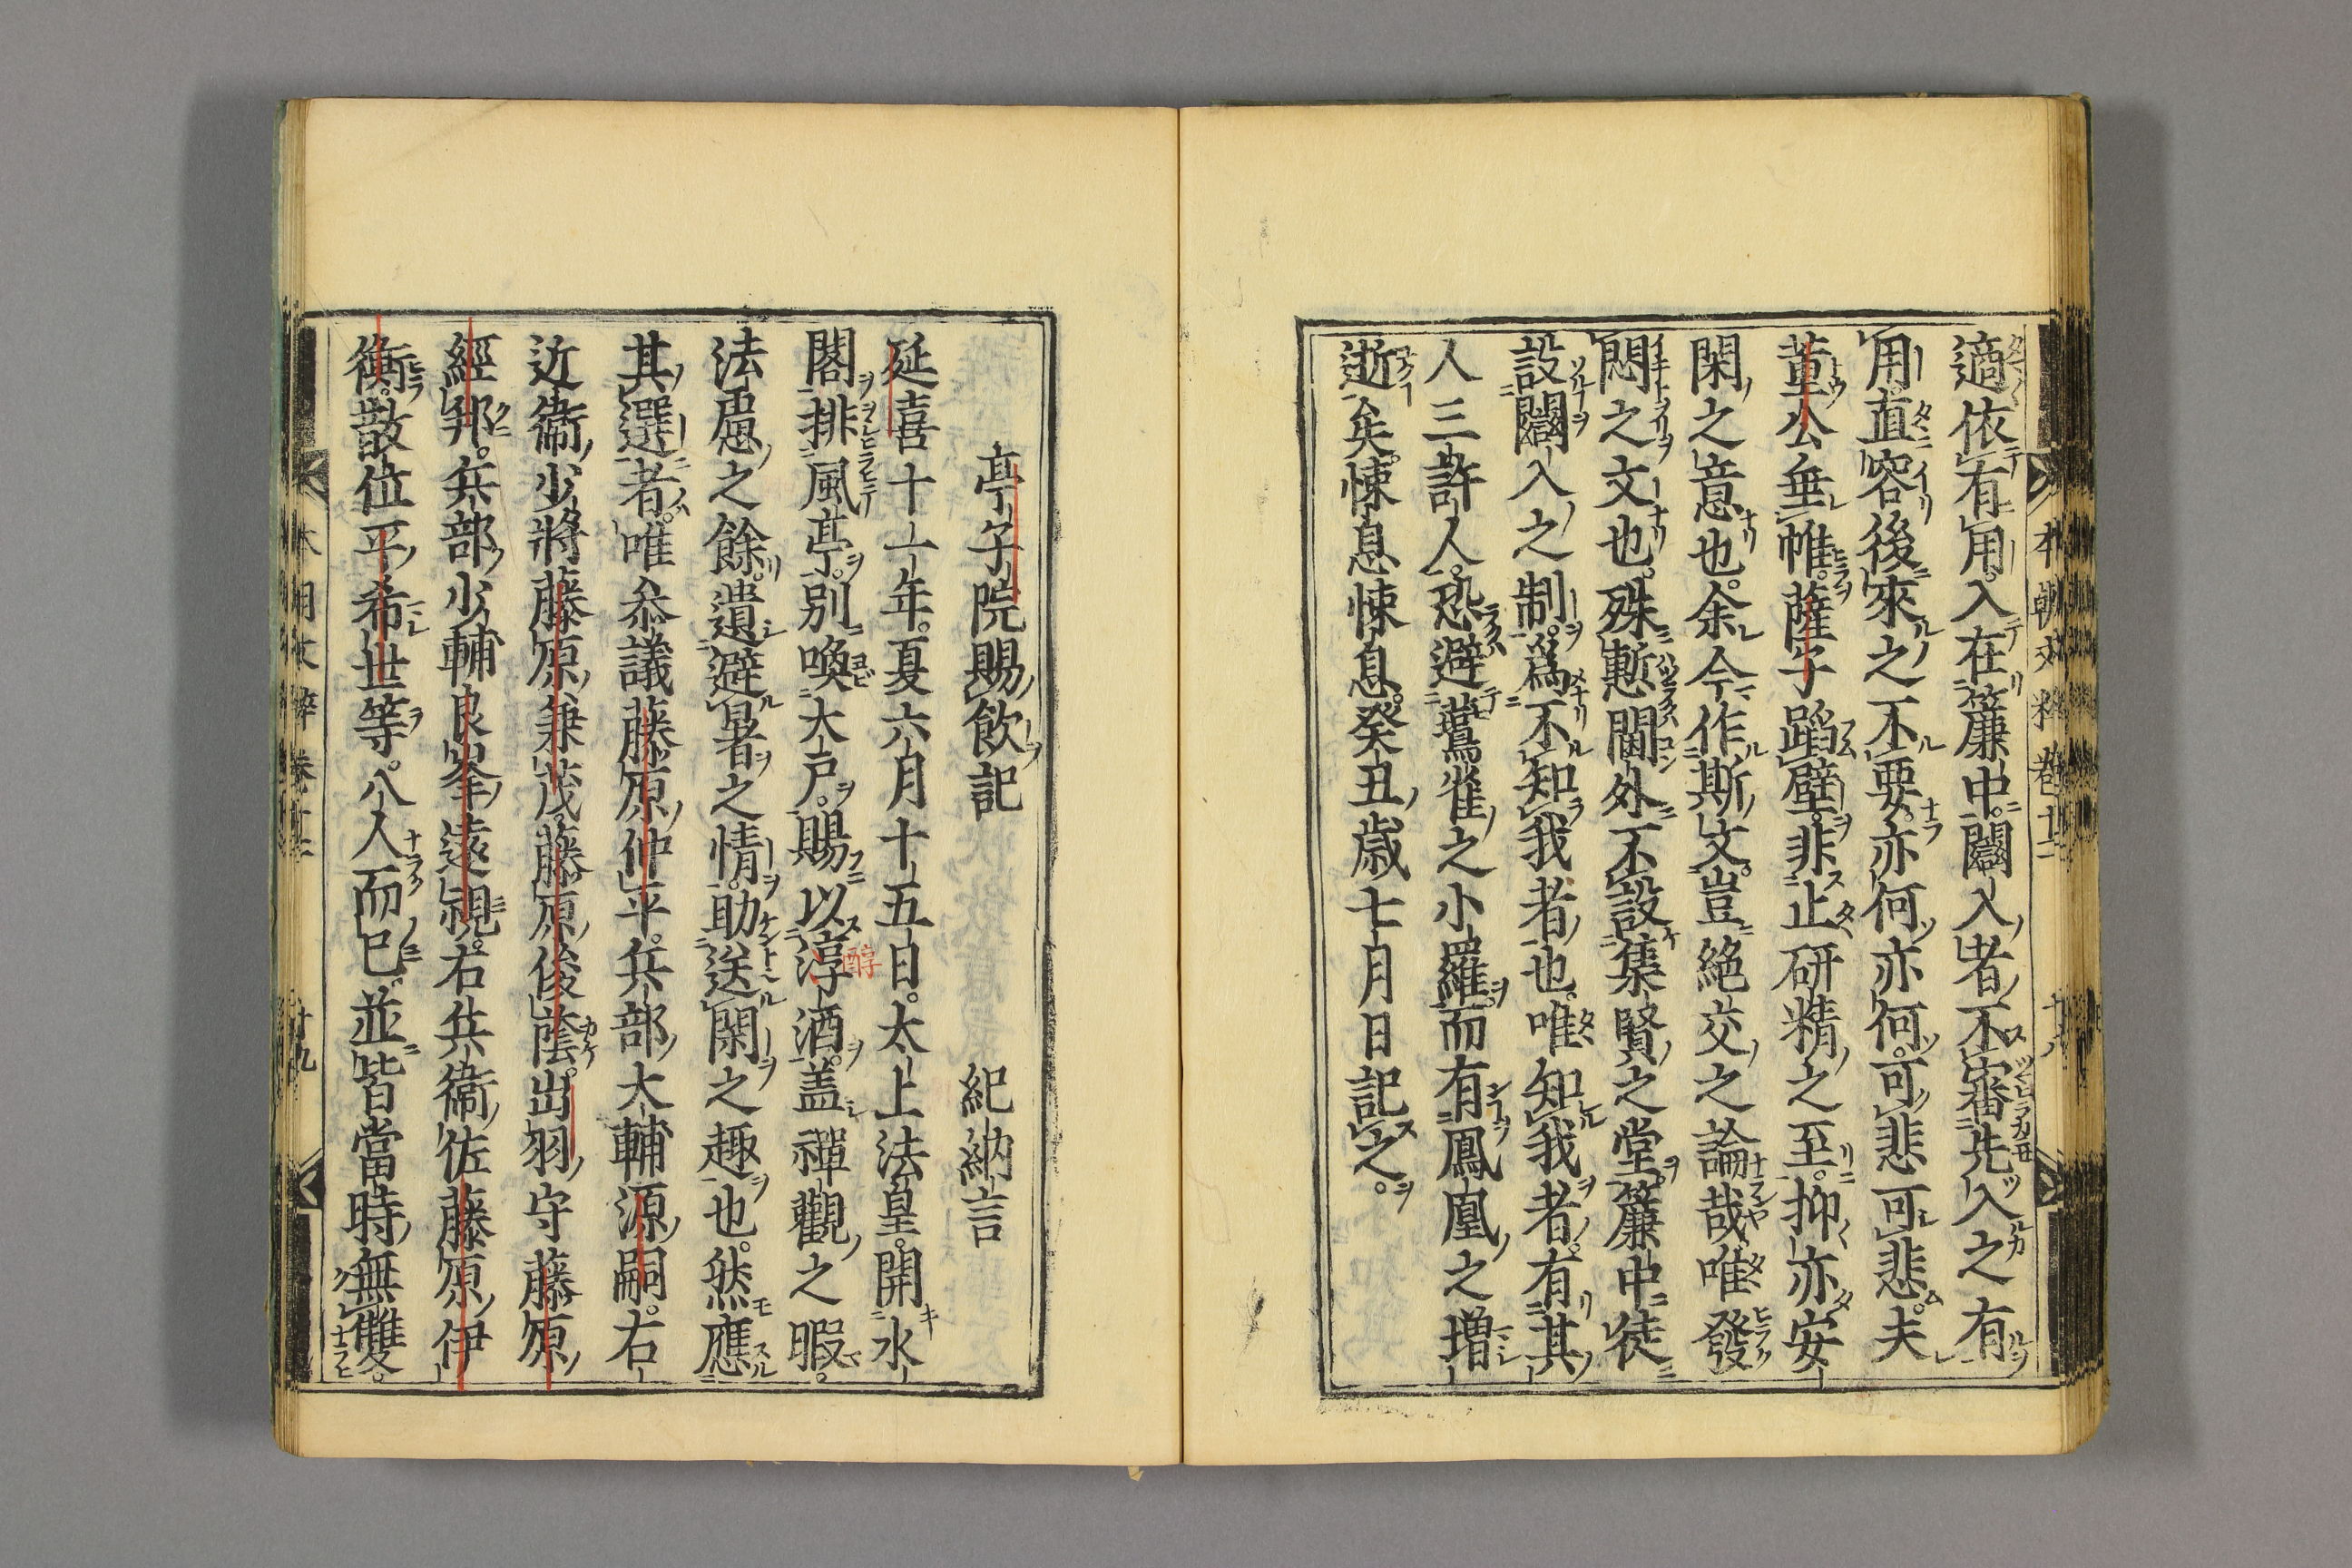 適依有用入在簾中闥入者不審先入之有
用直容後來之不要亦何亦何可悲可悲夫
董公垂帷薩子蹈壁非止研精之至抑亦安
閑之意也余今作斯文豈絕交之論哉唯發
悶之文也殊慙閫外不設集賢之堂簾中徒
設闥入之制爲不知我者也唯知我者有其
人三許人恐避鸎雀之小羅而有鳳凰之增
逝矣悚息悚息癸丑歲七月日記之
亭子院賜飲記
紀納言
延喜十一年夏六月十五日太上法皇開水
閣排風亭別喚大戶賜以淳酒盖禪觀之暇
醇
法慮之餘遺避暑之情助送閑之趣也然應
其選者唯叅議藤原仲平兵部大輔源嗣右
近衞少將藤原兼茂藤原俊蔭出羽守藤原
經邦兵部少輔良峯遠視右兵衞佐藤原伊
衡散位平希世等八人而已並皆當時無雙